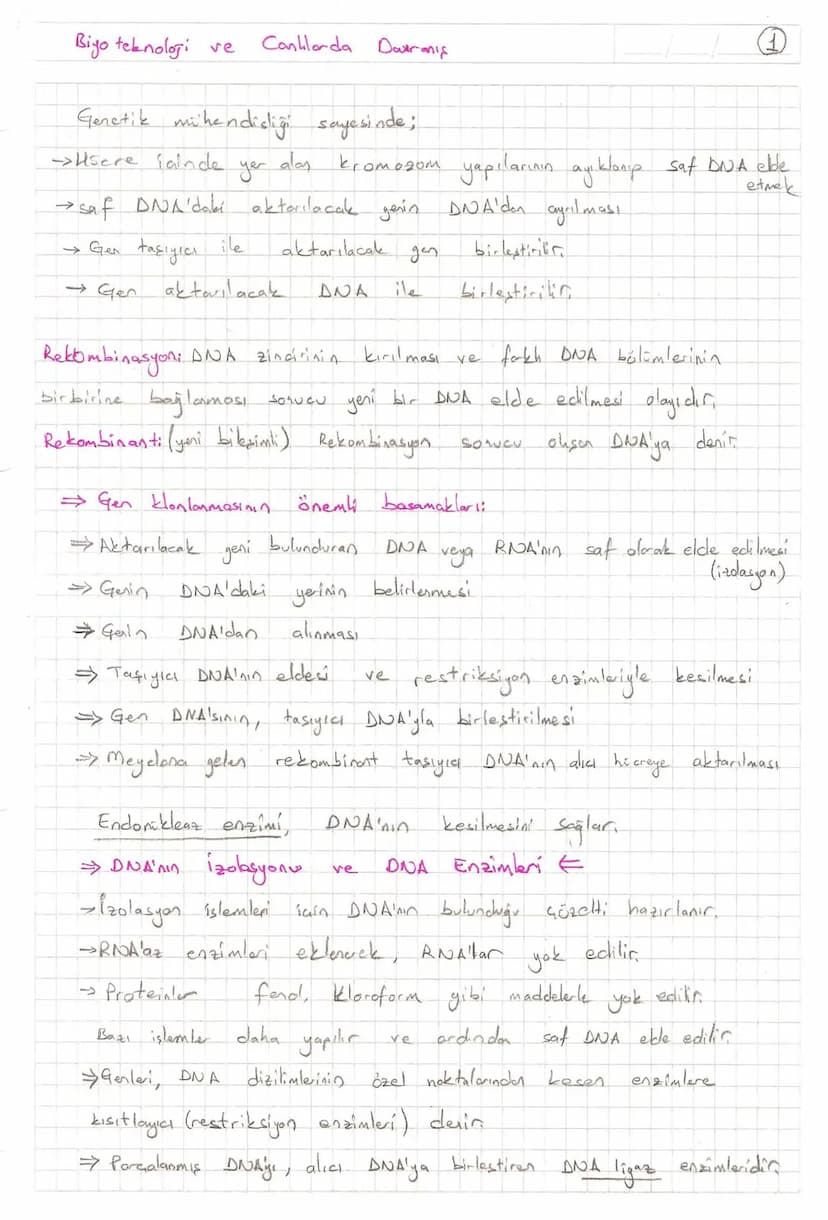 Biyoteknoloji ve Canlılarda Davranış
1
Genetik mühendisliği sayesinde;
→ Hücre içinde yer alan kromozom yapılarının ayıklanıp saf DNA elde
etmek
→ saf DNA'daki aktarılacak genin DNA'dan ayrılması
→ Gen taşıyıcı ile aktarılacak gen birleştirilir.
→ Gen aktarılacak DNA ile birleştirilir.
Rekombinasyon: DNA zincirinin kırılması ve farklı DNA bölümlerinin
birbirine bağlanması sonucu yeni bir DNA elde edilmesi olayıdır.
Rekombinant: (yeni bileşimli) Rekombinasyon sonucu oluşan DNA'ya denir.
⇒ Gen klonlanmasının önemli basamakları:
⇒ Aktarılacak geni bulunduran DNA veya RNA'nın saf olarak elde edilmesi
(izolasyon)
⇒ Genin DNA'daki yerinin belirlenmesi
⇒ Genin DNA'dan alınması
⇒ Taşıyıcı DNA'nın eldesi ve restriksiyon enzimleriyle kesilmesi
⇒ Gen DNA'sının, taşıyıcı DNA'yla birleştirilmesi
⇒ Meydana gelen rekombinant taşıyıcı DNA'nın alıcı hücreye aktarılması
Endonükleaz enzimi, DNA'nın kesilmesini sağlar.
⇒ DNA'nın İzolasyonu ve DNA Enzimleri ⇐
→ İzolasyon işlemleri için DNA'nın bulunduğu çözelti hazırlanır.
→ RNA'az enzimleri eklenerek, RNA'lar yok edilir.
→ Proteinler fenol, kloroform gibi maddelerle yok edilir.
Bazı işlemler daha yapılır ve ardında saf DNA elde edilir.
⇒ Genleri, DNA dizilimlerinin özel noktalarından kesen enzimlere
kısıtlayıcı (restriksiyon enzimleri) denir.
⇒ Parçalanmış DNA'yı, alıcı DNA'ya birleştiren DNA ligaz enzimleridir.